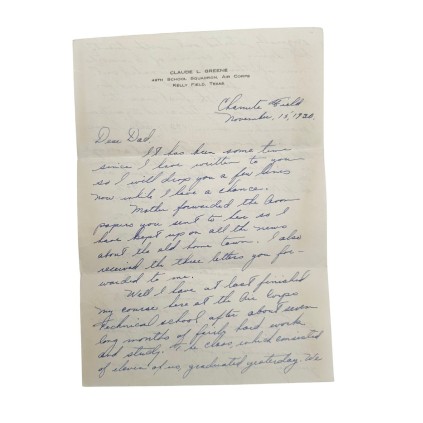 CLAUDE L. GREENE
48TH SCHOOL SQUADRON, AIR CORPS
KELLY FIELD, TEXAS
Chanute Field
November, 15, 1930.
Dear Dad,
It has been some time
since I have written to you
so I will drop you a few lines
now while I have a chance.
Mother forwarded the
papers you sent to her so I
have kept up on all the news
about the old home town. I also
received the three letters you for-
warded to me.
Well I have at last finished
my course here at the Air Corps
Technical school after about seven
long months of fairly hard work
and study. The class, which consisted
of eleven of us, graduated yesterday. We